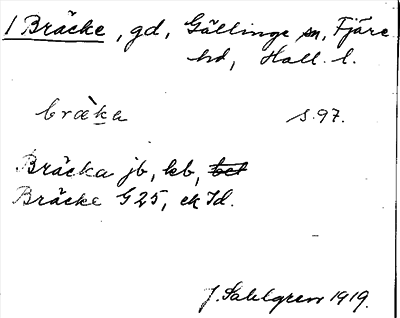 1 Bräcke, gd, Gällinge sn, Fjäre
hd, Hall. l.
bræ̀ka s. 97.
Bräcka jb, kb,
Bräcke G 25, ek Id.
J. Sahlgren 1919.